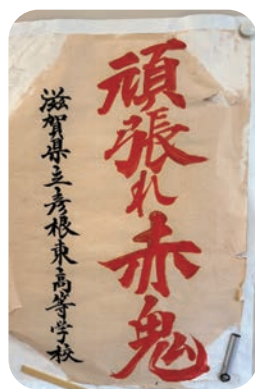 頑張れ赤鬼
滋賀県立彦根東高等学校